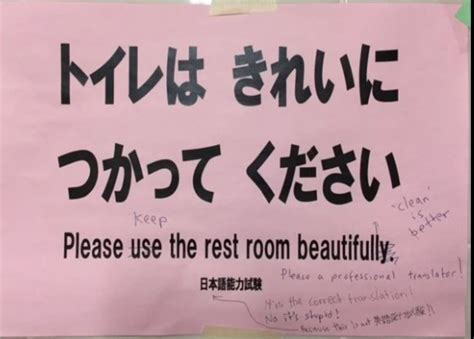 トイレは きれいに
つかって ください
Keep
'clean'
is
better
Please use the rest room beautifully.
Please a professional translator!
日本語能力試験
It's the correct translation!
No it's stupid!
Because this is not 英語能力試験!!